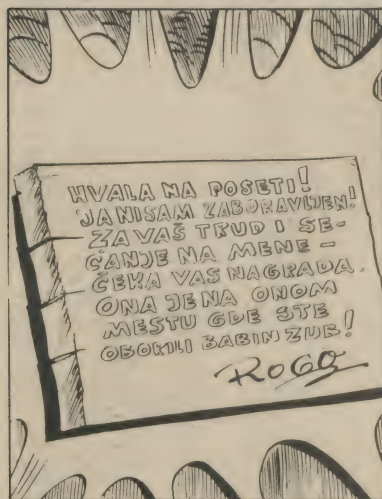 HVALA NA POSETI!
JA NISAM ZABORAVLJEN!
ZA VAŠ TRUD I SE-
ĆANJE NA MENE –
ČEKA VAS NAGRADA.
ONA JE NA ONOM
MESTU GDE STE
OBORILI BABIN ZUB!
ROGO